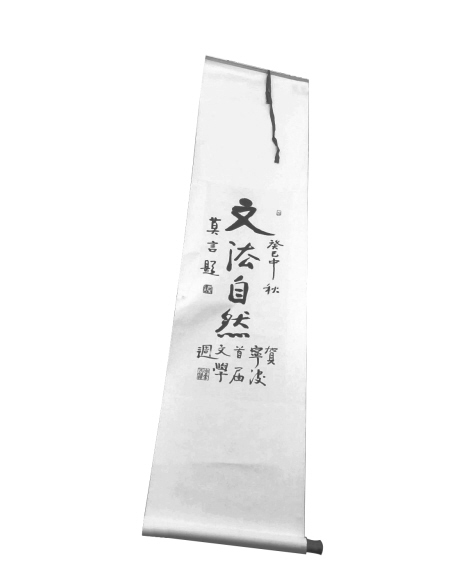 癸巳中秋
文法自然
莫言題
賀
寧波
首届
文學
週